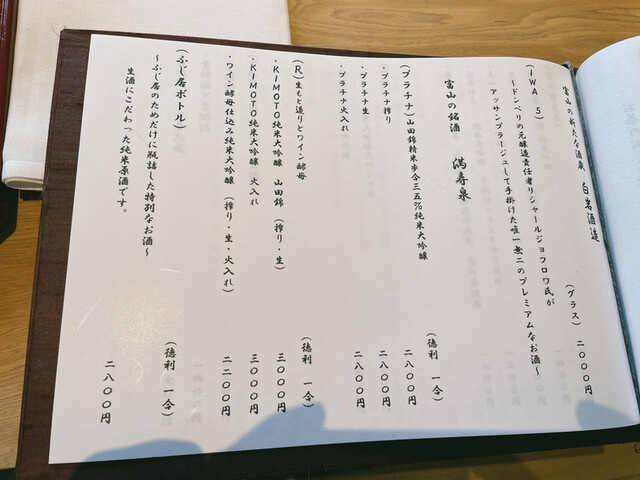 富山の新たな酒蔵 白岩酒造
(IWA 5) (グラス) 二〇〇〇円
~ドンペリの元醸造責任者リシャールジョフロワ氏が
アッサンブラージュして手掛けた唯一無二のプレミアムなお酒~
富山の銘酒 満寿泉
(プラチナ)山田錦精米歩合三五%純米大吟醸 (徳利 一合)
・プラチナ搾り 二八〇〇円
・プラチナ生 二八〇〇円
・プラチナ火入れ 二八〇〇円
(R)生もと造りとワイン酵母 (徳利 一合)
・KIMOTO純米大吟醸 山田錦 (搾り・生) 三〇〇〇円
・KIMOTO純米大吟醸 火入れ 三〇〇〇円
・ワイン酵母仕込み純米大吟醸 (搾り・生・火入れ) 二二〇〇円
(ふじ居ボトル) (徳利 一合)
~ふじ居のためだけに瓶詰した特別なお酒~
生酒にこだわった純米原酒です。 二八〇〇円